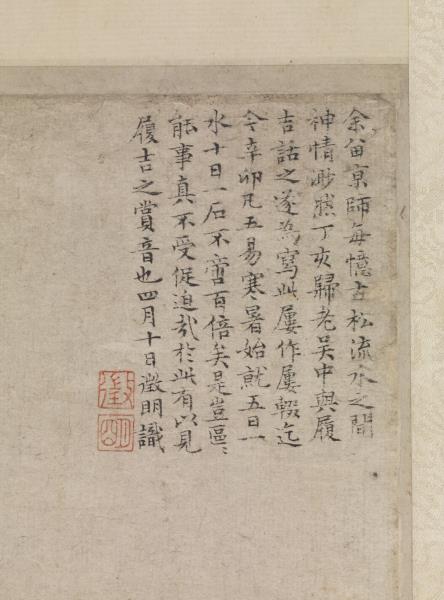 余留京師每憶古松流水之間
神情渺然丁亥歸老吳中與履
吉話之遂為寫此屢作屢輟迄
今辛卯凡五易寒暑始就五日一
水十日一石不啻百倍矣是豈區〻
能事真不受促迫哉於此有以見
履吉之賞音也四月十日徵明識
徵明